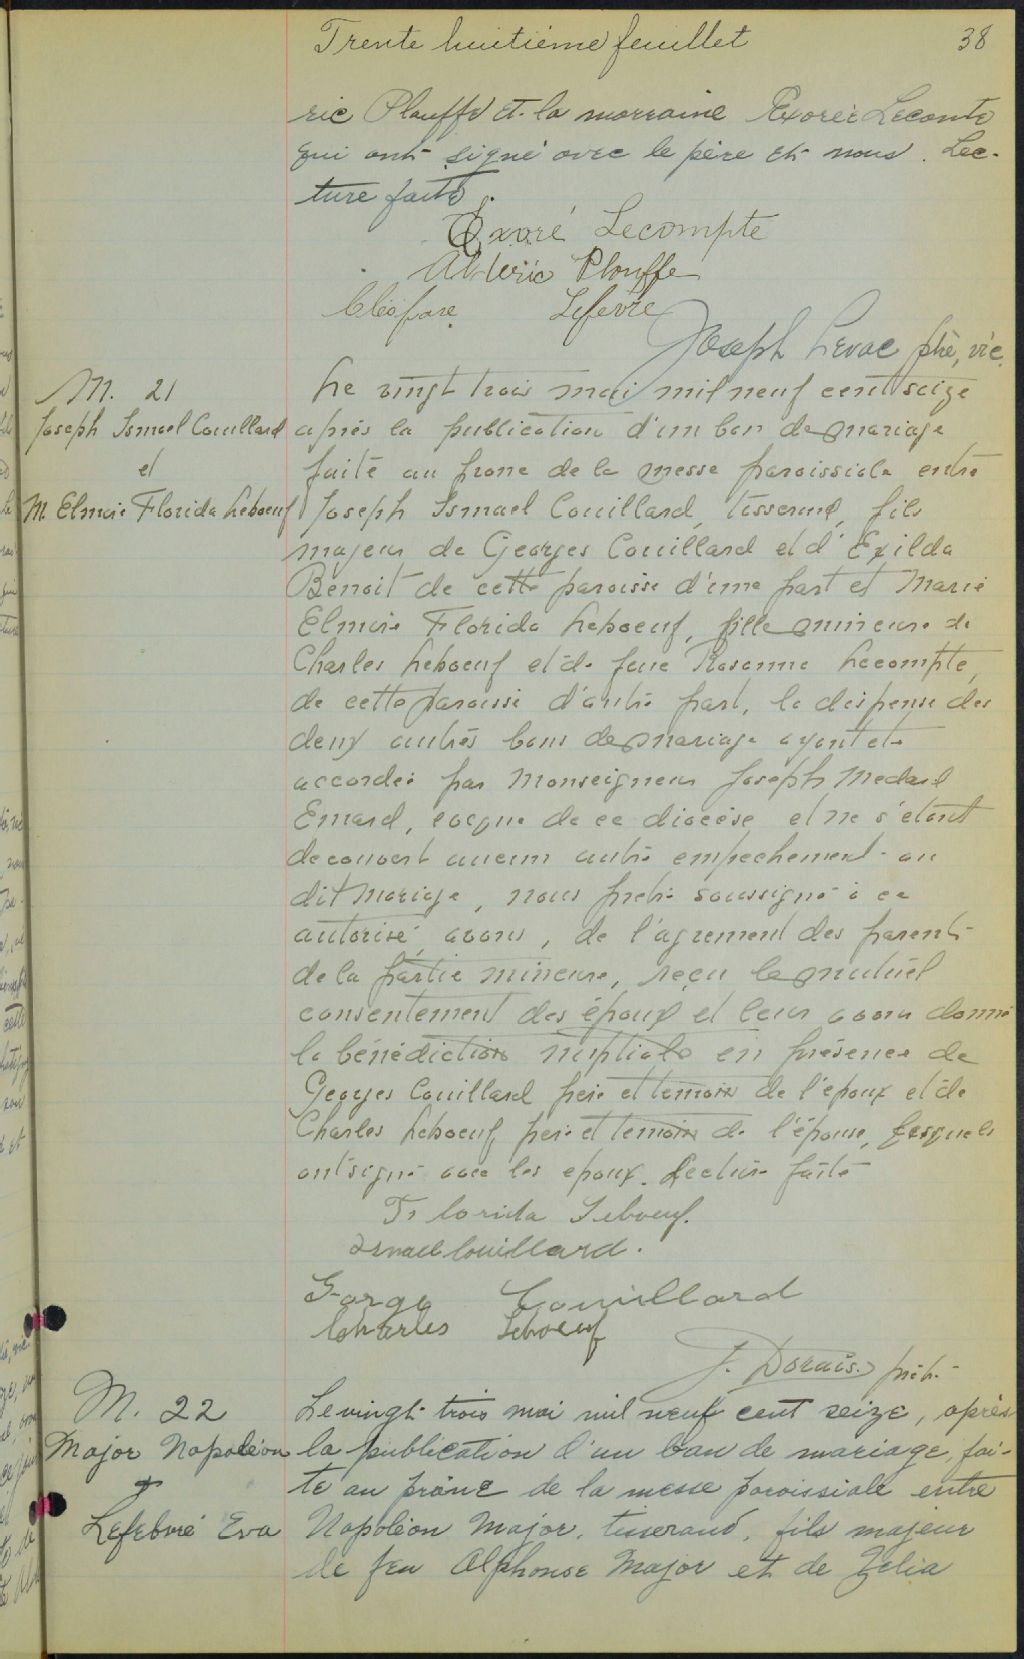 Trente huitième feuillet 38
ric Plouffe et la marraine Exorée Leconte
qui ont signé avec le père et nous. Lec-
ture faite.
Exoré Lecompte
Alderic Plouffe
Cléofase Lefevre
Joseph Levac ptre, vic.
M. 21
Joseph Ismael Couillard
et
M. Elmire Florida Leboeuf
Le vingt trois mai mil neuf cent seize
après la publication d'un ban de mariage
faite au prone de la messe paroissiale entre
Joseph Ismael Couillard, tisserand, fils
majeur de Georges Couillard et d'Exilda
Benoit de cette paroisse d'une part et Marie
Elmire Florida Leboeuf, fille mineure de
Charles Leboeuf et de feue Rosanne Lecompte,
de cette paroisse d'autre part, la dispense des
deux autres bans de mariage ayant ete
accordée par Monseigneur Joseph Medard
Emard, evêque de ce diocèse et ne s'etant
decouvert aucun autre empechement au
dit mariage, nous prêtre soussigné à ce
autorisé, avons, de l'agrement des parents
de la partie mineure, reçu le mutuel
consentement des époux et leur avons donné
la bénédiction nuptiale en présence de
Georges Couillard père et temoin de l'époux et de
Charles Leboeuf père et temoin de l'épouse, lesquels
ont signé avec les epoux. Lecture faite
Florida Leboeuf.
Ismael Couillard.
George Couillard
Charles Leboeuf
J. Dorais. prêt.
M. 22
Major Napoléon
&
Lefebvre Eva
Le vingt-trois mai mil neuf cent seize, après
la publication d'un ban de mariage, fai-
te au prône de la messe paroissiale entre
Napoléon Major, tisserand, fils majeur
de feu Alphonse Major et de Zelia